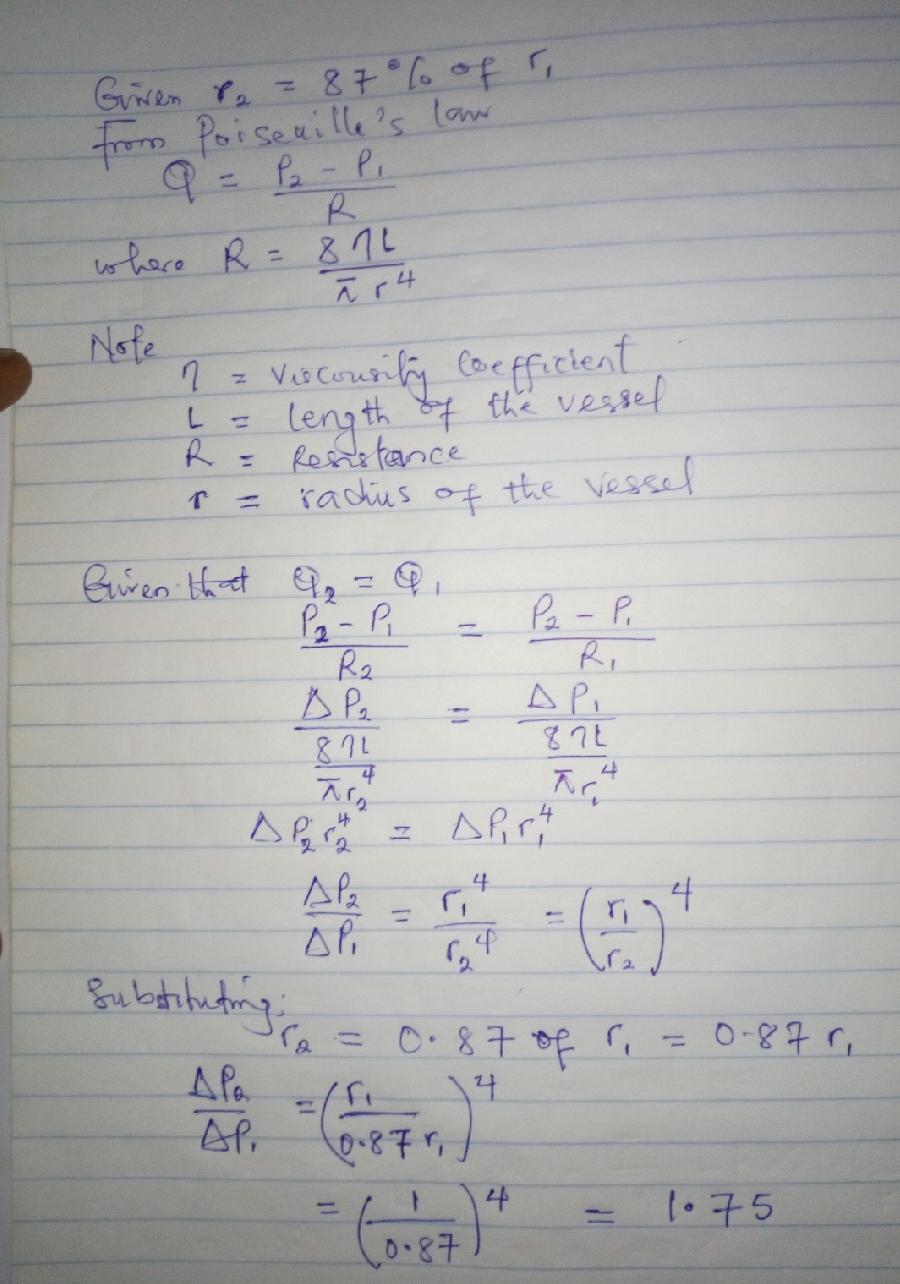 Given r₂ = 87% of r₁
from Poiseuille's law
Q = P₂ - P₁
R
where R = 8ηL
π r⁴
Note
η = Viscousity Coefficient
L = length of the vessel
R = Resistance
r = radius of the vessel
Given that Q₂ = Q₁
P₂ - P₁ = P₂ - P₁
R₂ R₁
ΔP₂ = ΔP₁
8ηL 8ηL
πr₂⁴ πr₁⁴
ΔP₂r₂⁴ = ΔP₁r₁⁴
ΔP₂ = r₁⁴ = (r₁)⁴
ΔP₁ r₂⁴ r₂
Substituting;
r₂ = 0.87 of r₁ = 0.87 r₁
ΔP₂ = (r₁)⁴
ΔP₁ 0.87 r₁
= (1)⁴ = 1.75
0.87